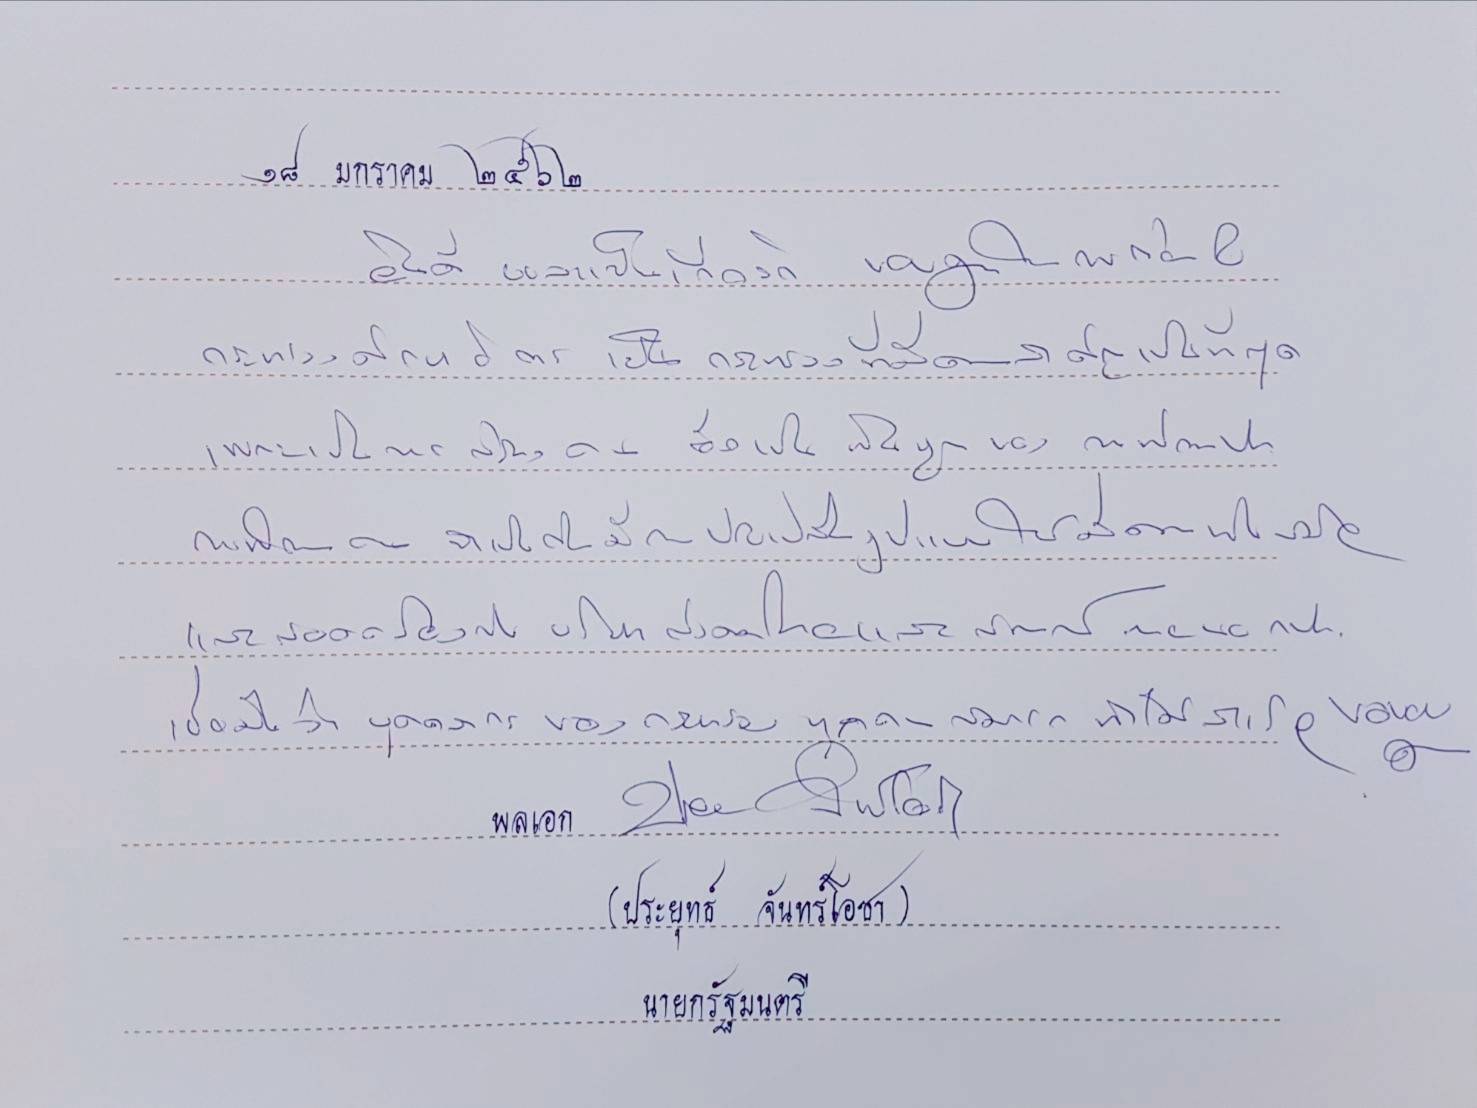 ๑๘ มกราคม ๒๕๖๒
ยินดี และเป็นเกียรติ
กระทรวงศึกษาธิการ เป็น กระทรวงที่มีความสำคัญเป็นที่สุด
เพราะเป็นการสร้างคน ซึ่งเป็น พื้นฐาน ของ การพัฒนา
การพัฒนาคน จำเป็นต้องมีการปรับเปลี่ยนรูปแบบให้มีความทันสมัย
และสอดคล้องกับ บริบท สังคมไทยและ
เชื่อมั่นว่า บุคลากร ของ กระทรวง ทุกคน สามารถ ทำให้สำเร็จ ขอบคุณ
พลเอก
(ประยุทธ์ จันทร์โอชา)
นายกรัฐมนตรี